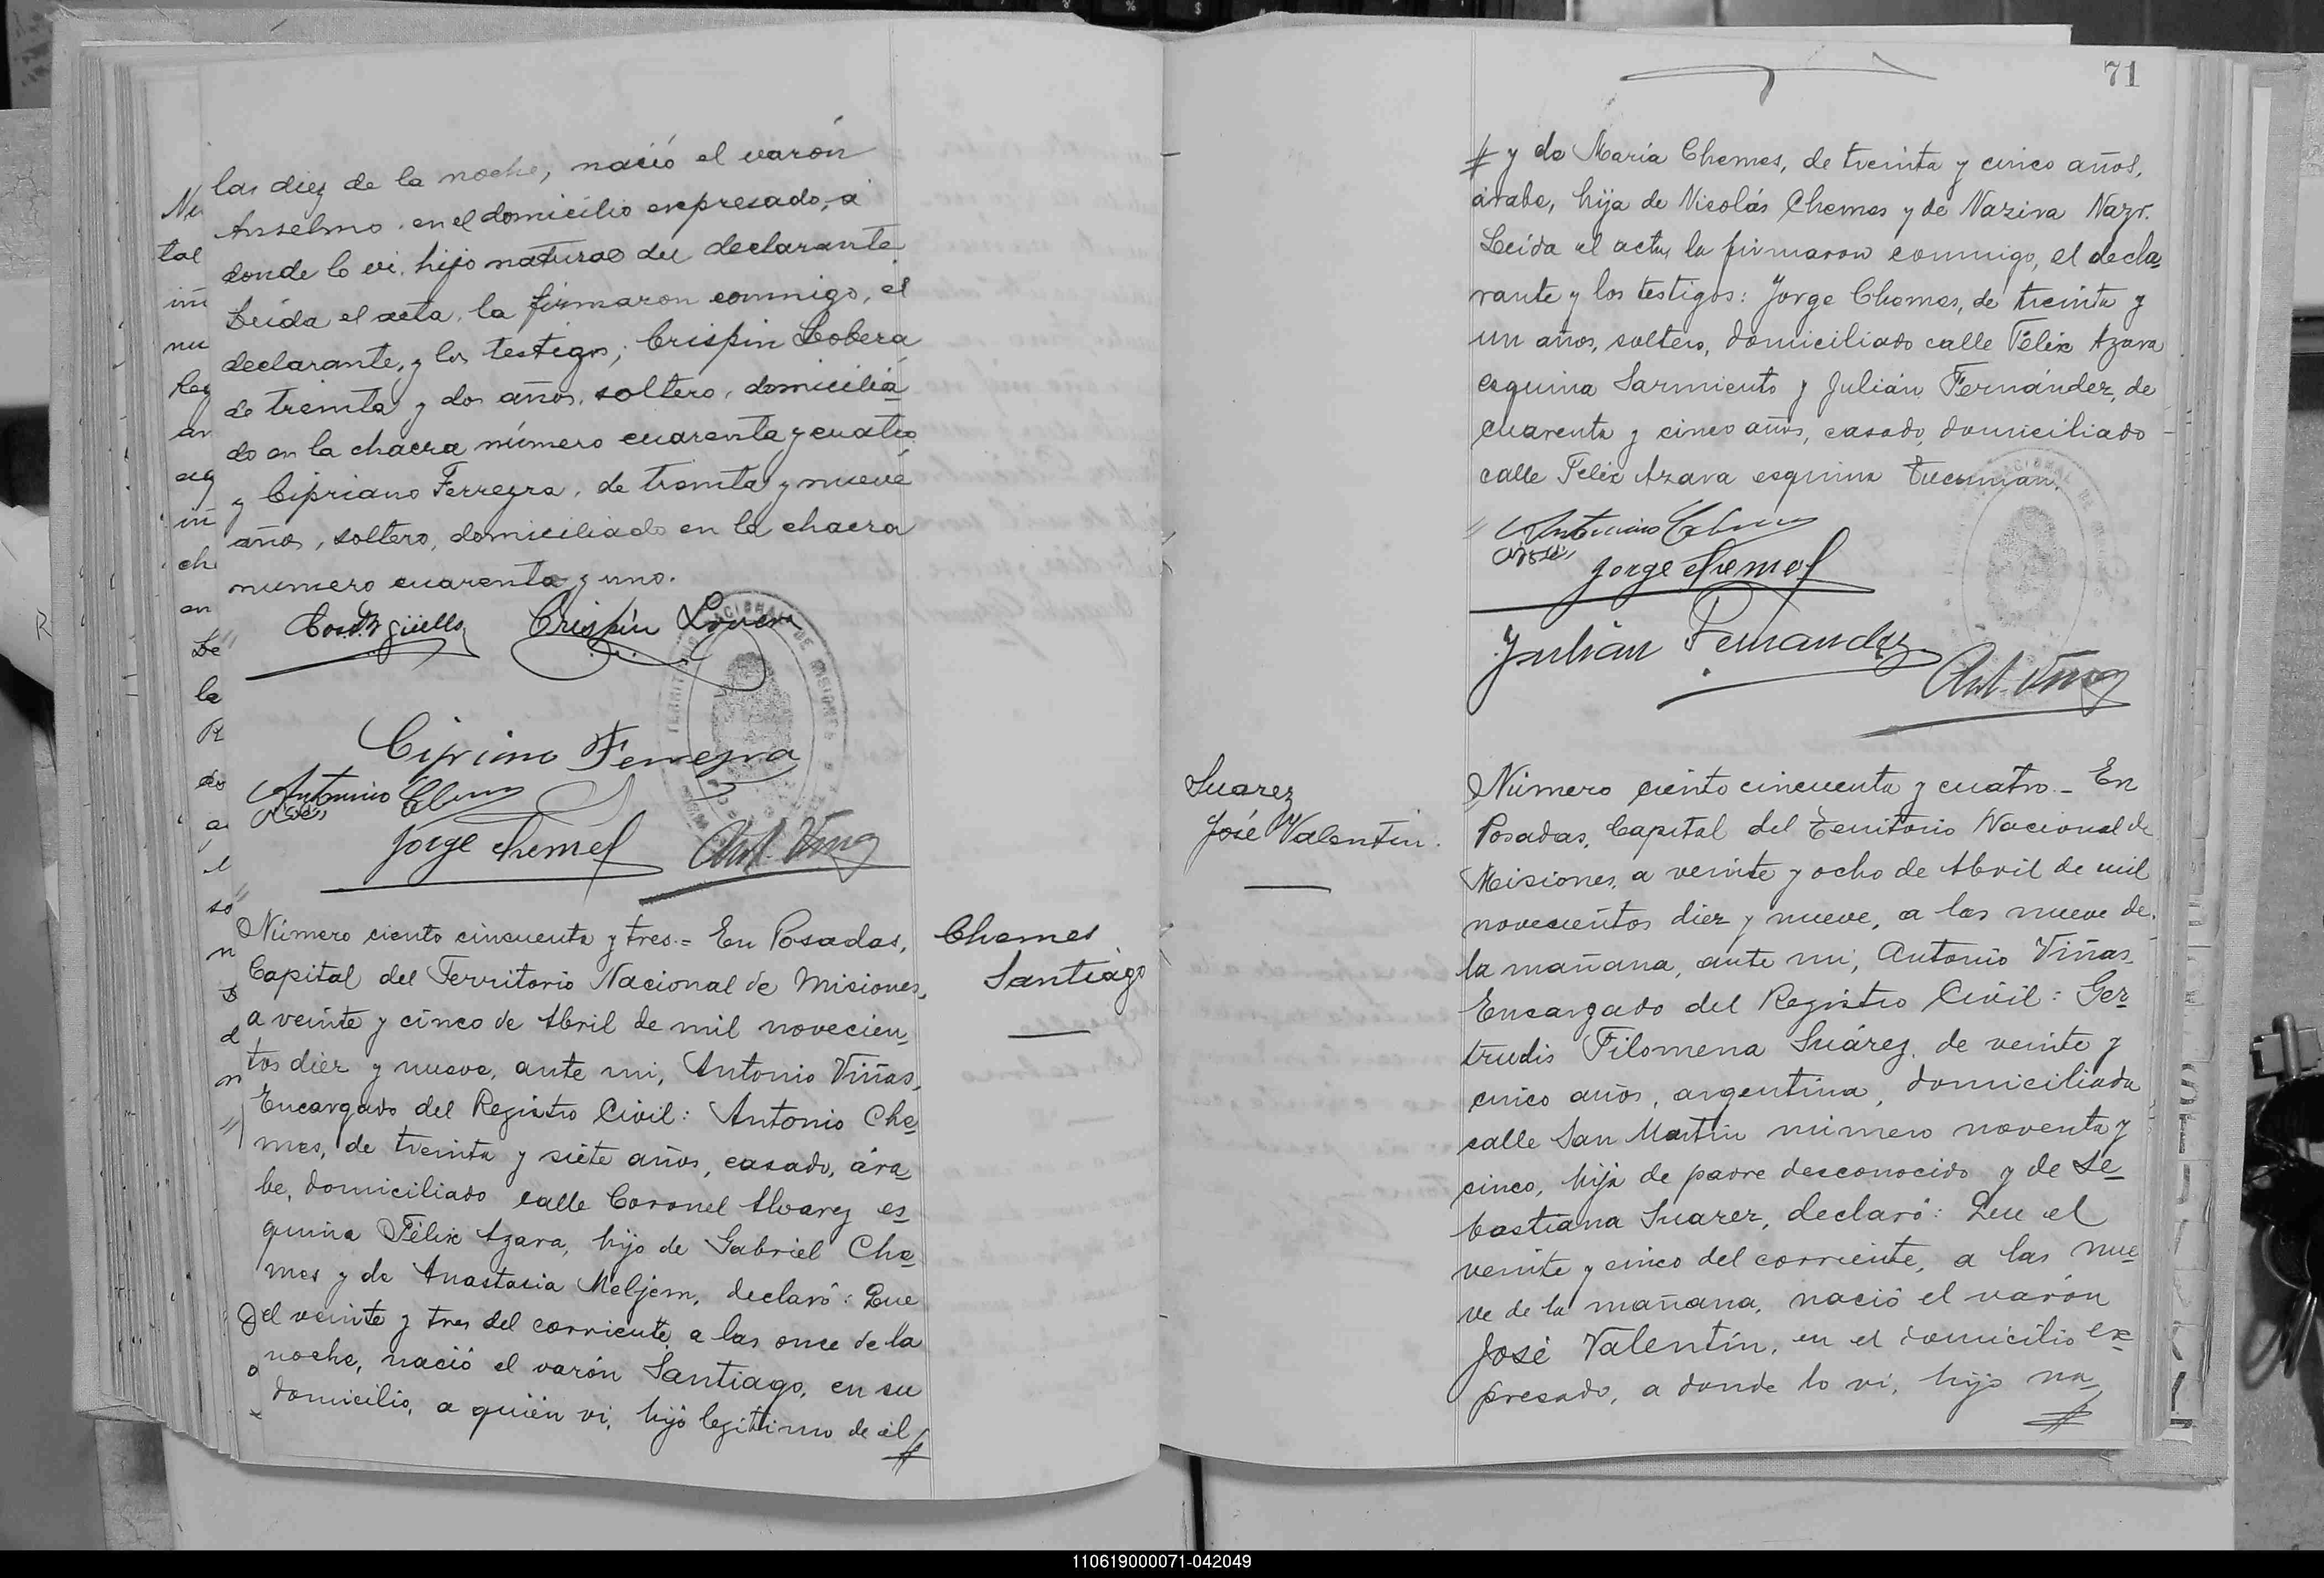 las diez de la noche, nació el varón
Anselmo. en el domicilio expresado, a
donde lo vi. hijo natural del declarante.
Leída el acta, la firmaron conmigo, el
declarante, y los testigos; Crispin Lobera
de treinta y dos años, soltero, domicilia
do en la chacra número cuarenta y cuatro
y Cipriano Ferreyra, de treinta y nueve
años, soltero, domiciliado en la chacra
numero cuarenta y uno.
Crispín
Cipriano Ferreyra
Antonino
Jorge Chemes
Ant. Viñas
Número ciento cincuenta y tres.= En Posadas,
Capital del Territorio Nacional de Misiones,
a veinte y cinco de Abril de mil novecien
tos diez y nueve, ante mi, Antonio Viñas,
Encargado del Registro Civil: Antonio Che
mes, de treinta y siete años, casado, ára
be, domiciliado calle Coronel Alvarez es
quina Félix Azara, hijo de Gabriel Che
mes y de Anastasia Meljem, declaró: Que
el veinte y tres del corriente a las once de la
noche, nació el varón Santiago, en su
domicilio, a quién vi, hijo legitimo de él
Chemes
Santiago
71
y de María Chemes, de treinta y cinco años,
árabe, hija de Nicolás Chemes y de Nazira Nazr.
Leída el acta, la firmaron conmigo, el decla
rante y los testigos: Jorge Chemes, de treinta y
un años, soltero, domiciliado calle Félix Azara
esquina Sarmiento y Julián Fernández, de
cuarenta y cinco años, casado, domiciliado
calle Felix Azara esquina Tucumán.
Antonino
Jorge Chemes
Julián Fernandez
Ant. Viñas
Suarez
José Valentin.
Número ciento cincuenta y cuatro.- En
Posadas, Capital del Territorio Nacional de
Misiones, a veinte y ocho de Abril de mil
novecientos diez y nueve, a las nueve de
la mañana, ante mi, Antonio Viñas
Encargado del Registro Civil: Ger
trudis Filomena Suárez, de veinte y
cinco años, argentina, domiciliada
calle San Martín número noventa y
cinco, hija de padre desconocido y de Se
bastiana Suarez, declaró: Que el
veinte y cinco del corriente, a las nue
ve de la mañana, nació el varón
José Valentín, en el domicilio ex
presado, a donde lo vi, hijo na
110619000071-042049